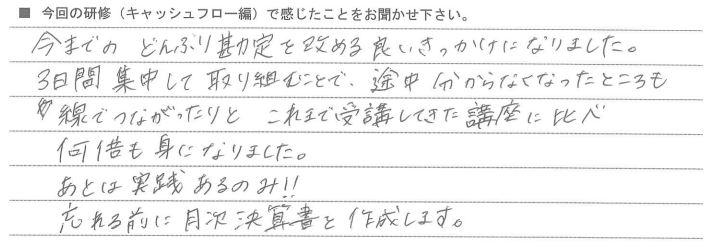 ■ 今回の研修（キャッシュフロー編）で感じたことをお聞かせ下さい。
今までの どんぶり勘定を改める良いきっかけになりました。
3日間 集中して取り組むことで、途中 分からなくなったところも
線でつながったりと これまで受講してきた講座に比べ
何倍も身になりました。
あとは実践あるのみ!!
忘れる前に月次決算書を作成します。